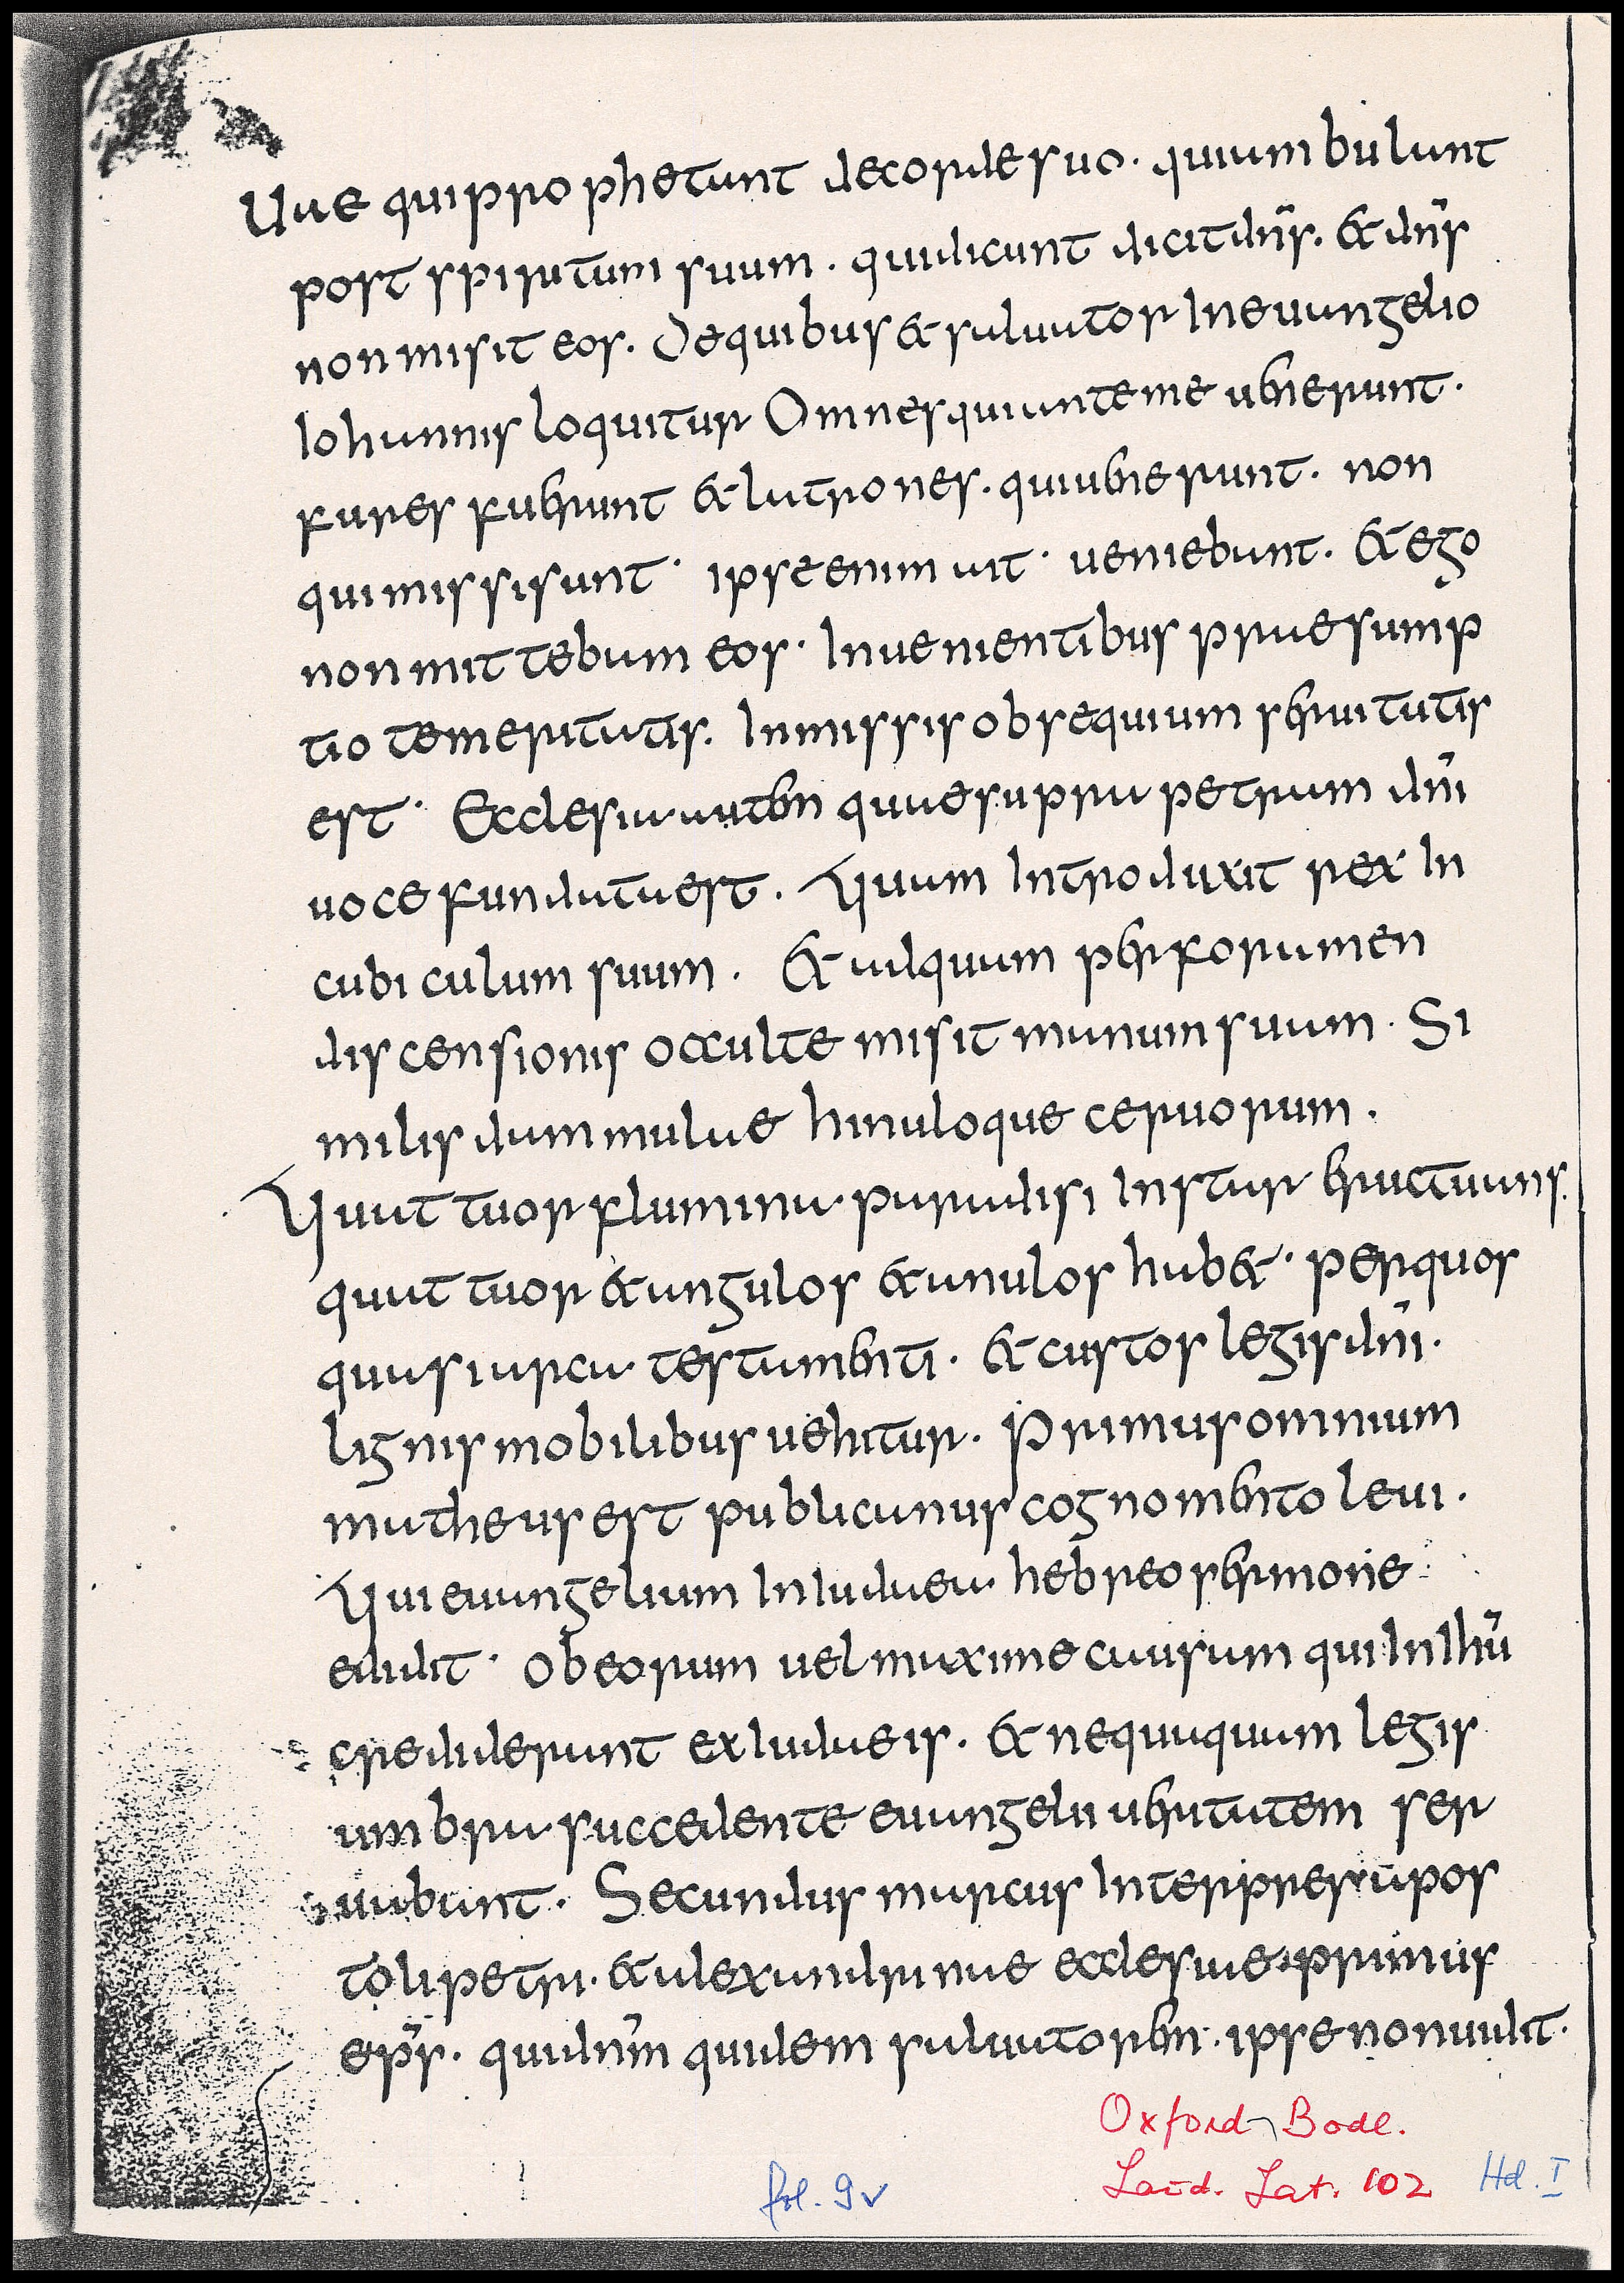 Uae qui prophetant de corde suo. qui ambulant
post spiritum suum. qui dicunt dicit dn̄s. & dn̄s
non misit eos. De quibus & saluator In euangelio
Iohannis loquitur Omnes qui ante me uenerunt.
fures fuerunt & latrones. qui uenerunt. non
qui missi sunt. ipse enim ait. ueniebant. & ego
non mittebam eos. In uenientibus praesump
tio temeritatis. In missis obsequium seruitutis
est. Ecclesia autem quae supra petrum dn̄i
uoce fundata est. Quam Introduxit rex In
cubiculum suum. & ad quam per foramen
discensionis occulte misit manum suam. Si
milis dammulae hinuloque ceruorum.
Quattuor flumina paradisi Instar eructuans.
quattuor & angulos & anulos hab&. per quos
quasi arca testamenti. & custos legis dn̄i.
lignis mobilibus uehitur. Primus omnium
matheus est publicanus cognomento leui.
Qui euangelium In iudaea hebreo sermone
edidit. ob eorum uel maxime causam qui In ihū
crediderunt ex iudaeis. & nequaquam legis
umbra succedente euangelii ueritatem ser
uabant. Secundus marcus Interpres apos
toli petri. & alexandrinae ecclesiae primus
ep̄s. qui dn̄m quidem saluatorem. ipse non uidit.
Oxford, Bodl.
Laud. Lat. 102
Hd. I
fol. 9v